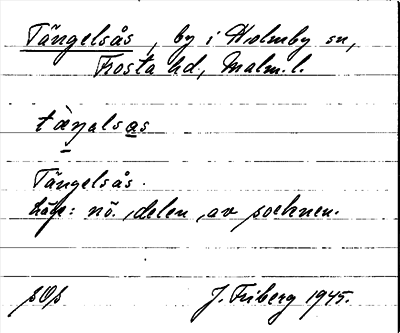 Tängelsås, by i Holmby sn,
Frosta hd., Malm. l.
tæŋalsas
Tängelsås.
nö. delen av socknen.
J. Friberg 1945.